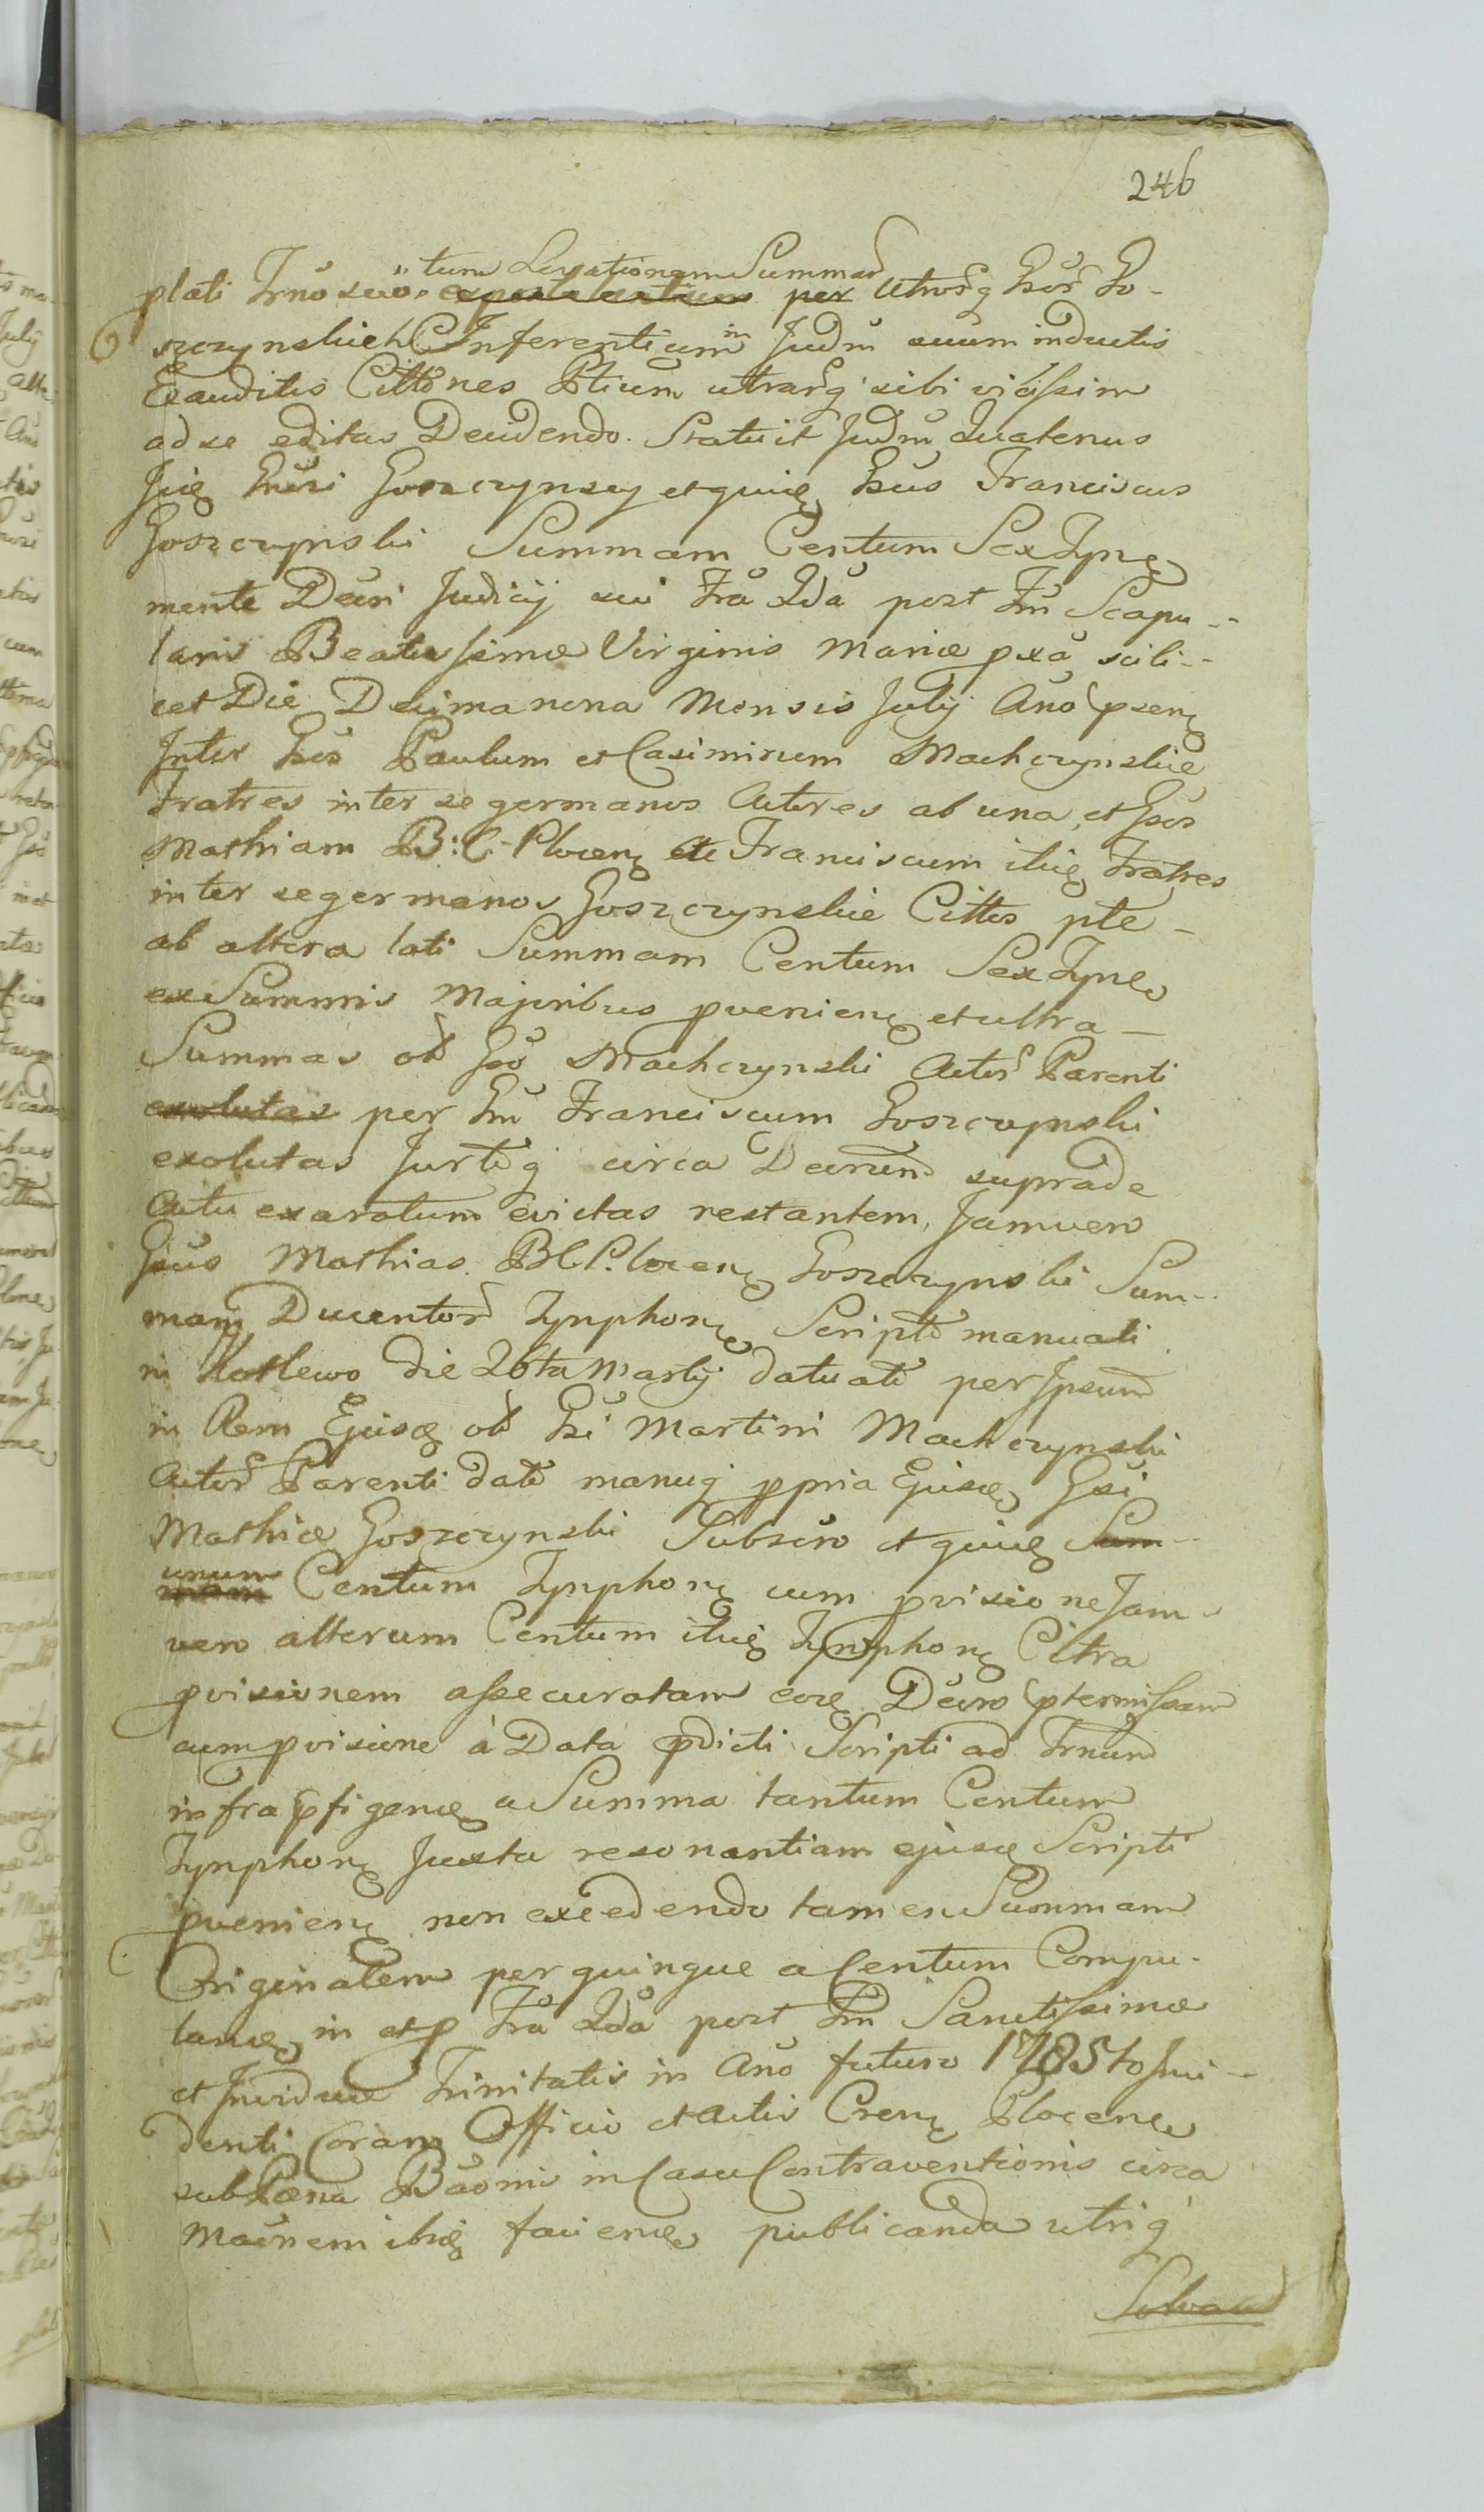 246
tum Levationem Summar
plati Trno suo expostulationem per Utrosq Gsos Go-
szczynskich Inferentium in Judm suum inductis
Exauditis Cittones Ptium utrarq sibi vicissim
ad se editas Decidendo. Statuit Judm Quatenus
Gnsi Goszczynscy et quidę Gsus Franciscus
Goszczynski Summam Centum Sex Tynę
mente Decri Judicij sui Fra 2da post Fm Scapu--
laris Beatissimæ Virginis Mariæ pxa scili--
cet Die Decima nona Mensis Julij Ano psenę
Inter Gsos Paulum et Casimirum Machczynskie
Fratres inter se germanos Actores ab una, et Gsos
Mathiam B: C. Plocenę et Franciscum itidę Fratres
inter se germanos Goszczynskie Cittos pte-
ab altera lati Summam Centum Sex Tynę
ex Summis Majoribus pvenienę et ultra-
Summas olt Gso Machczynski Actor Parenti
exolutas per Gm Franciscum Goszczynski
exolutas Jurteq circa Decrum suprade
Actu exaratum evictas restantem, Jam vero
Gsus Mathias BC Plocenę Goszczynski Sum--
mam Ducentor Tynphonę Scripto manuali
in Kotlewo die 26ta Martij datu ate per Ipsum
in Rem Ejusdę olt Gsi Martini Machczynski
Actor Parenti date manuq ppria Ejusdę Gsi
Mathiæ Goszczynski Subscro et quidę Sum-
unum
mam Centum Tynphonę cum pvisione Jam-
vero alterum Centum itidę Tynphonę Citra
pvisionem assecuratam eodę Decro ptermissam
cum pvisione à Data pdicti Scripti ad Trnum
infra pfigendę a Summa tantum Centum
Tynphonę Juxta resonantiam ejusdę Scripti
pvenienę non excedendo tamen Summam
Originalem per quinque a Centum Compu-
tandę in et p Fra 2da post Fm Sanctissimæ
et Individuæ Trinitatis in Ano futuro 1785to Inci-
denti Coram Officio et Actis Crenę Plocenę
sub Pæna Baomis in Casu Contraventionis circa
Maonem ibidę faciendę publicanda utriq
Solvant